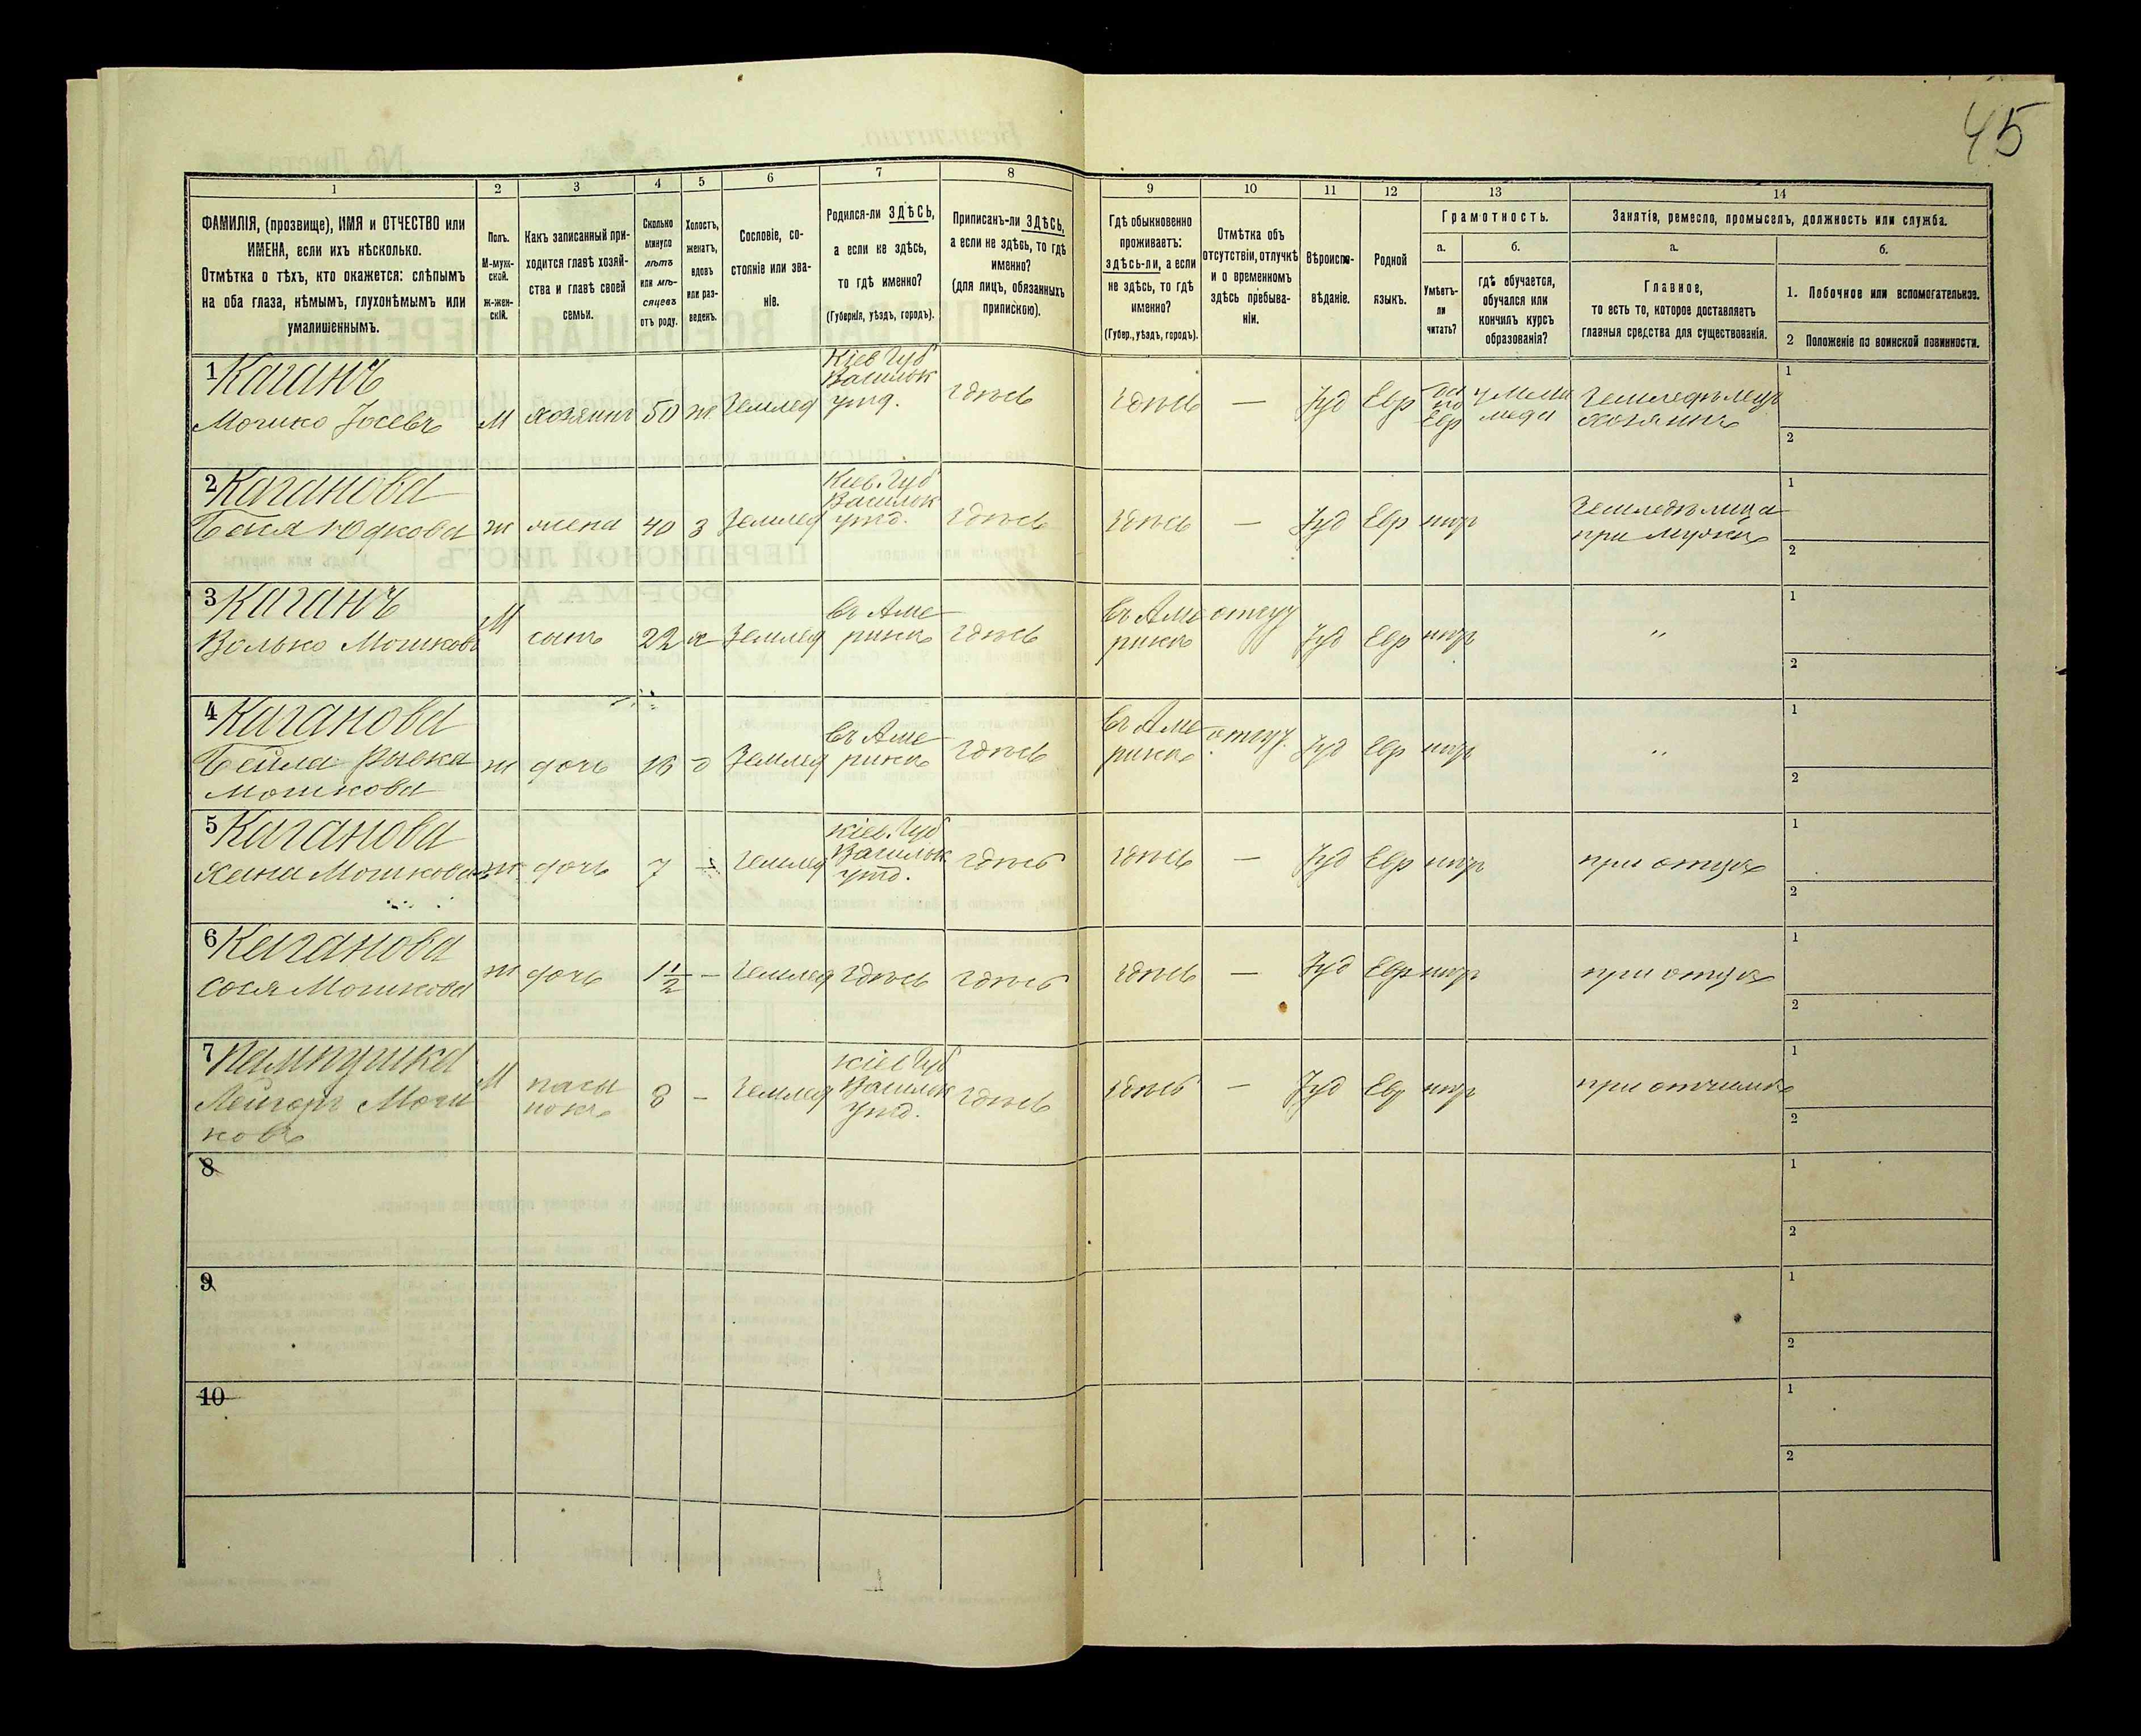 45
1 2 3 4 5 6 7 8 9 10 11 12 13 14
ФАМИЛІЯ, (прозвище), ИМЯ и ОТЧЕСТВО или
ИМЕНА, если ихъ нѣсколько.
Отмѣтка о тѣхъ, кто окажется: слѣпымъ
на оба глаза, нѣмымъ, глухонѣмымъ или
умалишеннымъ.
Полъ.
М-муж-
ской.
Ж-жен-
скій.
Какъ записанный при-
ходится главѣ хозяй-
ства и главѣ своей
семьи.
Сколько
минуло
лѣтъ
или мѣ-
сяцевъ
отъ роду.
Холостъ,
женатъ,
вдовъ
или раз-
веденъ.
Сословіе, со-
стояніе или зва-
ніе.
Родился-ли ЗДѢСЬ,
а если не здѣсь,
то гдѣ именно?
(Губернія, уѣздъ, городъ).
Приписанъ-ли ЗДѢСЬ,
а если не здѣсь, то гдѣ
именно?
(для лицъ, обязанныхъ
припискою).
Гдѣ обыкновенно
проживаетъ:
здѣсь-ли, а если
не здѣсь, то гдѣ
именно?
(Губер., уѣздъ, городъ).
Отмѣтка объ
отсутствіи, отлучкѣ
и о временномъ
здѣсь пребыва-
ніи.
Вѣроиспо-
вѣданіе.
Родной
языкъ.
Грамотность.
а.
Умѣетъ-
ли
читать?
б.
гдѣ обучается,
обучался или
кончилъ курсъ
образованія?
Занятіе, ремесло, промыселъ, должность или служба.
а.
Главное,
то есть то, которое доставляетъ
главныя средства для существованія.
б.
1. Побочное или вспомогательное.
2 Положеніе по воинской повинности.
1 Каганъ
Мошко Іосевъ М хозяинъ 50 ж Землед
Кіев. Губ
Васильк
уѣзд.
здѣсь здѣсь — Іуд Евр
по
Евр
у мела
меда
Земледѣлецъ
хозяинъ
1
2
2 Каганова
Бася Юдкова ж жена 40 з Землед
Кіев. Губ
Васильк
уѣзд.
здѣсь здѣсь — Іуд Евр нѣтъ
Земледѣлица
при мужѣ
1
2
3 Каганъ
Волько Мошковъ М сынъ 22 х Землед
въ Аме
рикѣ
здѣсь
въ Аме
рикѣ
отсут Іуд Евр нѣтъ "
1
2
4 Каганова
Бейла Рывка
Мошкова
ж дочь 18 д Землед
въ Аме
рикѣ
здѣсь
въ Аме
рикѣ
отсут. Іуд Евр нѣтъ "
1
2
5 Каганова
Хана Мошкова ж дочь 7 Землед
Кіев. Губ
Васильк
уѣзд.
здѣсь здѣсь — Іуд Евр нѣтъ при отцѣ
1
2
6 Каганова
Сося Мошкова ж дочь 1 1/2 — Землед здѣсь здѣсь здѣсь — Іуд Евр нѣтъ при отцѣ
1
2
7 Пампушка
Лейзоръ Мош
ковъ
М
пасы
нокъ
8 — Землед
Кіев Губ
Васильк
уѣзд.
здѣсь здѣсь — Іуд Евр нѣтъ при отчимѣ
1
2
8
1
2
9
1
2
10
1
2